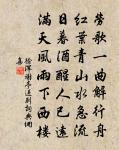 勞歌一曲解行舟
紅葉青山水急流
日暮酒醒人已遠
滿天風雨下西樓
許渾謝亭送別詞典網
集